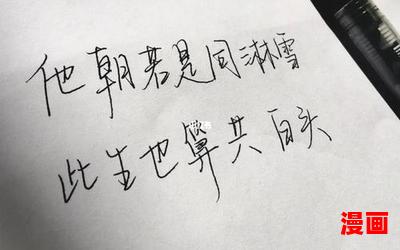 他朝若是同淋雪
此生也算共白头
漫画